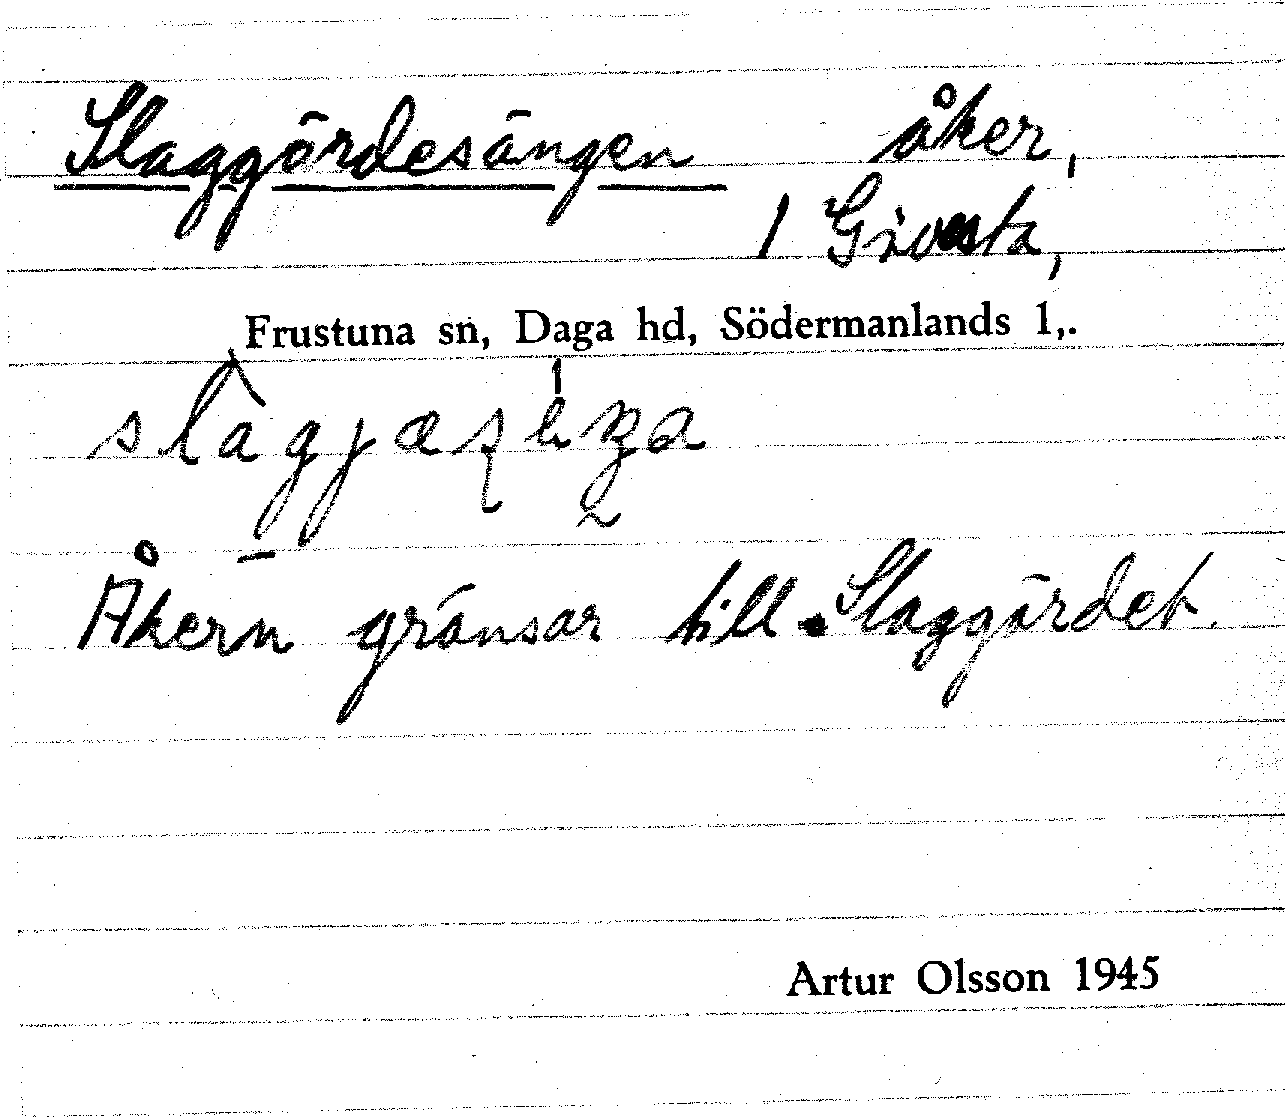 Slaggördesängen åker,
1 Givesta,
Frustuna sn, Daga hd, Södermanlands l,.
Åkern gränsar till Slaggärdet.
Artur Olsson 1945